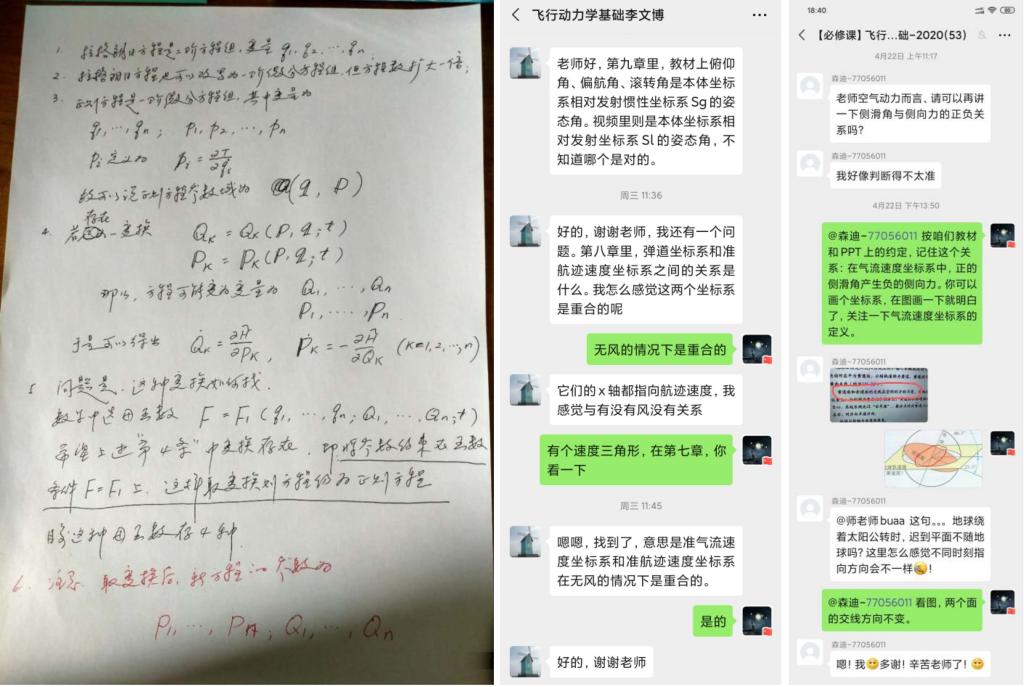 1. 拉格朗日方程是二阶方程组，变量 q₁, q₂, …qₙ
2. 拉格朗日方程也可以改写为一阶微分方程组，但方程数扩大一倍；
3. 正则方程是一阶微分方程组，其中变量为
q₁, …, qₙ； p₁, p₂, …, pₙ
pᵢ定义为 pᵢ = ∂T/∂q̇ᵢ
故可以说正则方程参数域为 (q, p)
4. 若存在一变换 Qₖ = Qₖ(p, q; t)
Pₖ = Pₖ(p, q; t)
那么，方程可转变为变量为 Q₁, …, Qₙ
P₁, …, Pₙ
于是可以得出 Q̇ₖ = ∂H̃/∂Pₖ， Ṗₖ = -∂H̃/∂Qₖ (k=1,2,…,n)
5 问题是，这种变换如何找.
数学中是母函数 F = F₁(q₁, …, qₙ; Q₁, …Qₙ; t)
希望上述"第4条"中变换存在，即将参数约束在函数
条件 F=F₁上，这种取变换则方程仍为正则方程
目前这种母函数有4种.
6. 注意：取变换后，新方程的参数为
P₁, …, Pₙ; Q₁, …, Qₙ
飞行动力学基础李文博
老师好，第九章里，教材上俯仰
角、偏航角、滚转角是本体坐标
系相对发射惯性坐标系Sg的姿
态角。视频里则是本体坐标系相
对发射坐标系Sl的姿态角，不
知道哪个是对的。
周三 11:36
好的，谢谢老师，我还有一个问
题。第八章里，弹道坐标系和准
航迹速度坐标系之间的关系是
什么。我怎么感觉这两个坐标系
是重合的呢
无风的情况下是重合的
它们的x轴都指向航迹速度，我
感觉与有没有风没有关系
有个速度三角形，在第七章，你
看一下
周三 11:45
嗯嗯，找到了，意思是准气流速
度坐标系和准航迹速度坐标系
在无风的情况下是重合的。
是的
好的，谢谢老师
18:40
【必修课】飞行...础-2020(53)
4月22日 上午11:17
森迪-77056011
老师空气动力而言、请可以再讲
一下侧滑角与侧向力的正负关
系吗？
森迪-77056011
我好像判断得不太准
4月22日 下午13:50
@森迪-77056011 按咱们教材
和PPT上的约定，记住这个关
系：在气流速度坐标系中，正的
侧滑角产生负的侧向力。你可以
画个坐标系，在图画一下就明白
了，关注一下气流速度坐标系的
定义。
森迪-77056011
森迪-77056011
@师老师buaa 这句。。。地球绕
着太阳公转时，迟到平面不随地
球吗？这里怎么感觉不同时刻指
向方向会不一样！
@森迪-77056011 看图，两个面
的交线方向不变。
森迪-77056011
嗯！我多谢！辛苦老师了！